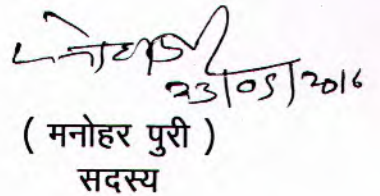 23/05/2016
( मनोहर पुरी )
सदस्य